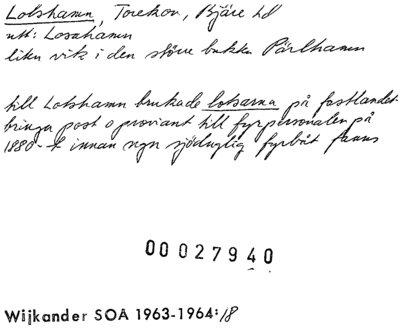 Lotshamn, Torekov, Bjäre hd
utt: Losahamn
liten vik i den större bukten Pärlhamn
till Lotshamn brukade lotsarna på fastlandet
bringa post o proviant till fyrpersonalen på
1880-t innan ngn sjöduglig fyrbåt fanns
00027940
Wijkander SOA 1963-1964:18